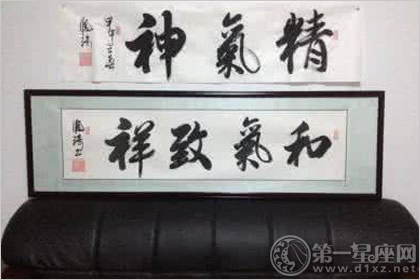 精氣神
甲午之春
和氣致祥
第一星座网
www.d1xz.net